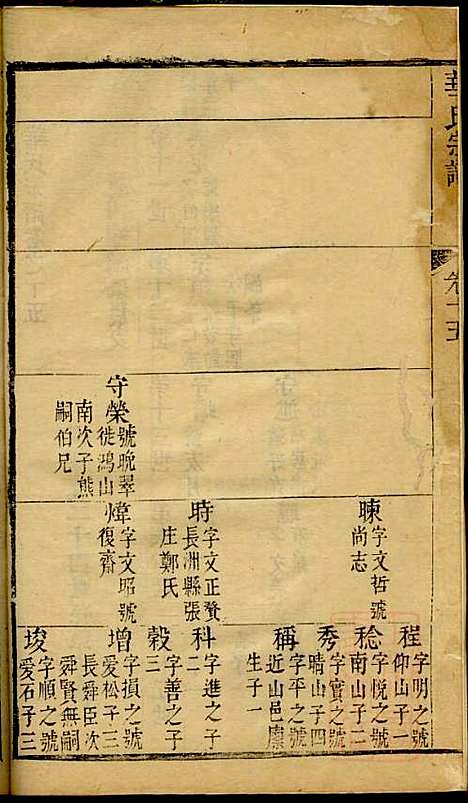 華氏宗譜
卷十五
守榮號晚翠
徙鴻山
南次子熊
嗣伯兄
暕字文哲號
尚志
時字文正贅
長洲縣張
庄鄭氏
煒字文昭號
復齋
程字明之號
仰山子一
稔字悅之號
南山子二
秀字實之號
晴山子四
稱字平之號
近山邑廩
生子一
科字進之子
二
穀字善之子
三
增字損之號
愛松子三
長舜臣次
舜賢無嗣
埈字順之號
愛石子三